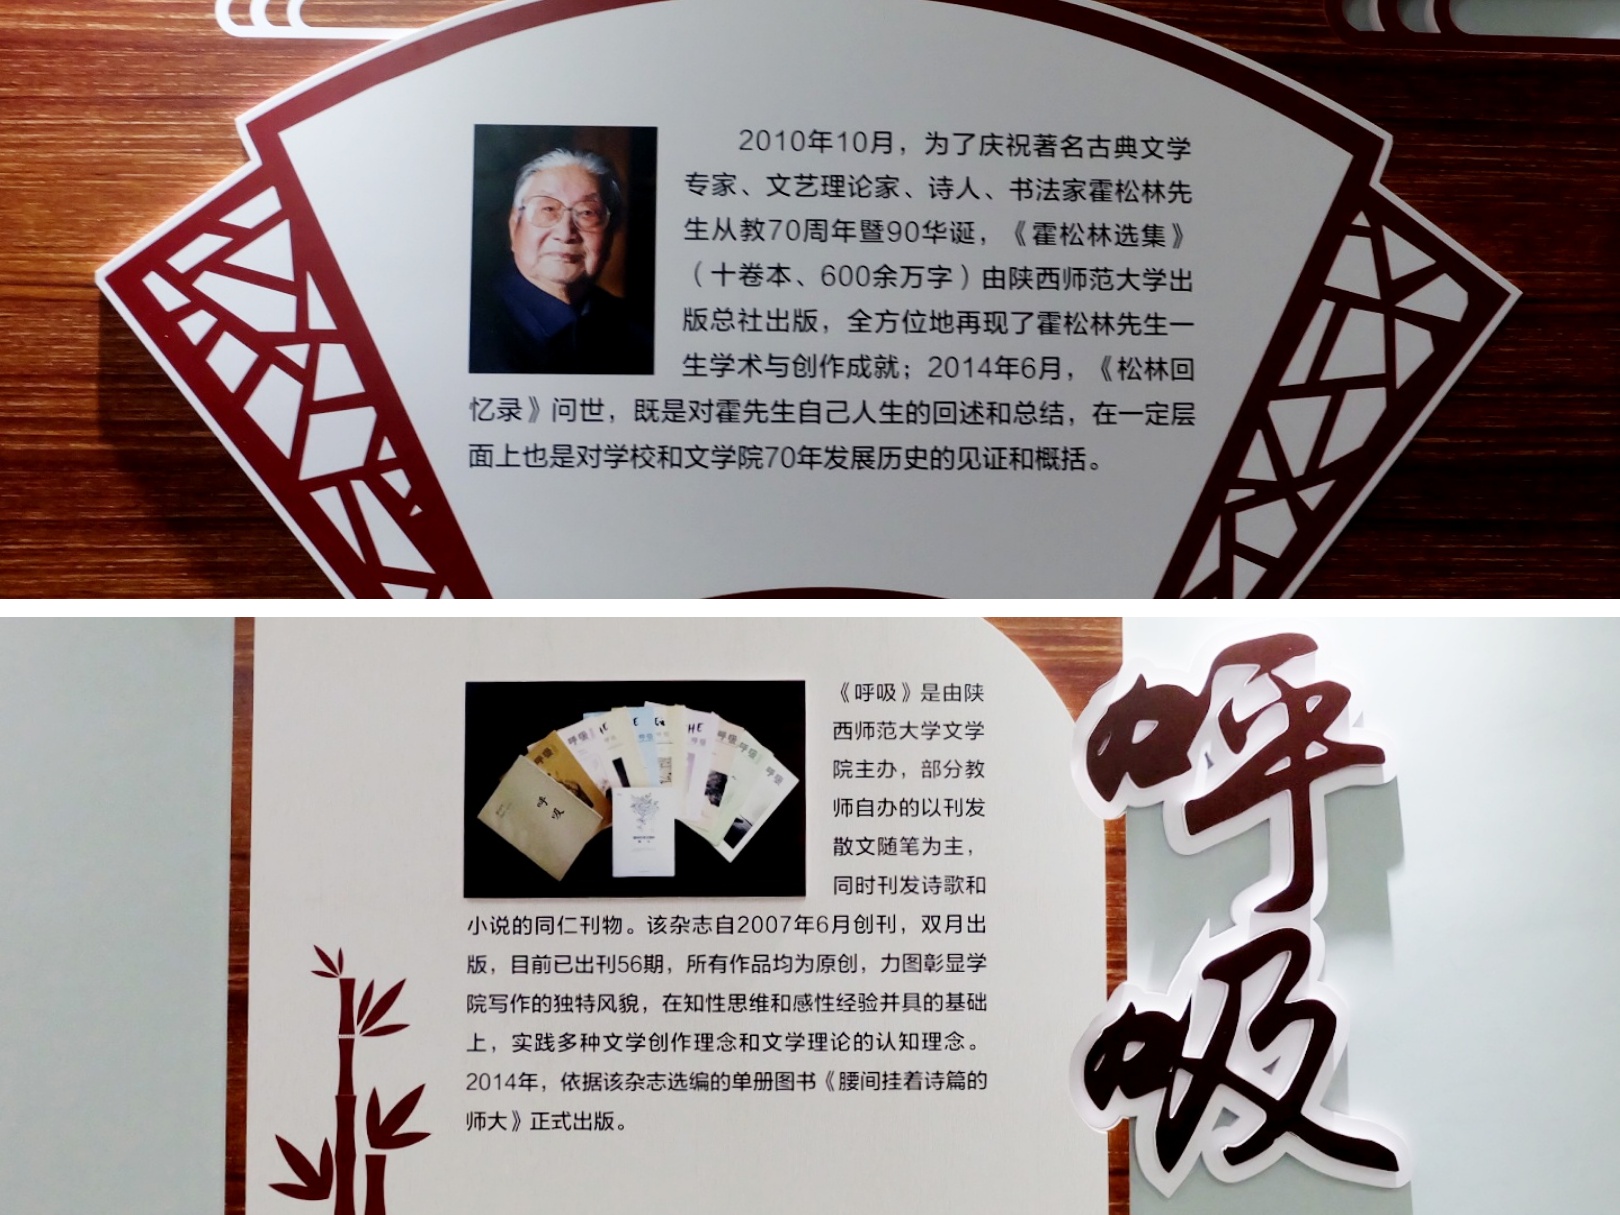 2010年10月，为了庆祝著名古典文学
专家、文艺理论家、诗人、书法家霍松林先
生从教70周年暨90华诞，《霍松林选集》
（十卷本、600余万字）由陕西师范大学出
版总社出版，全方位地再现了霍松林先生一
生学术与创作成就；2014年6月，《松林回
忆录》问世，既是对霍先生自己人生的回述和总结，在一定层
面上也是对学校和文学院70年发展历史的见证和概括。
《呼吸》是由陕
西师范大学文学
院主办，部分教
师自办的以刊发
散文随笔为主，
同时刊发诗歌和
小说的同仁刊物。该杂志自2007年6月创刊，双月出
版，目前已出刊56期，所有作品均为原创，力图彰显学
院写作的独特风貌，在知性思维和感性经验并具的基础
上，实践多种文学创作理念和文学理论的认知理念。
2014年，依据该杂志选编的单册图书《腰间挂着诗篇的
师大》正式出版。
呼吸
呼吸
呼吸
HE
呼吸
呼吸
呼吸
呼吸
呼吸